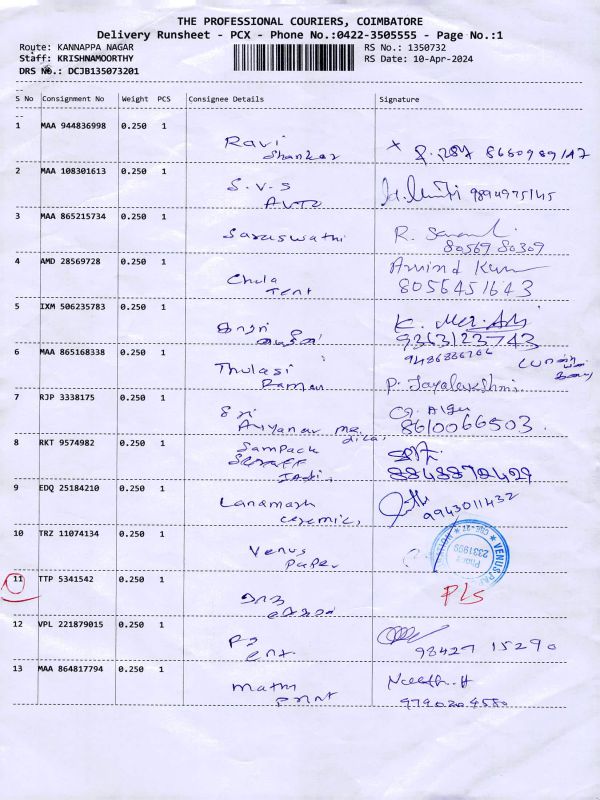 THE PROFESSIONAL COURIERS, COIMBATORE
Delivery Runsheet - PCX - Phone No.:0422-3505555 - Page No.:1
Route: KANNAPPA NAGAR
RS No.: 1350732
Staff: KRISHNAMOORTHY
RS Date: 10-Apr-2024
DRS No.: DCJB135073201
S No Consignment No Weight PCS Consignee Details Signature
1 MAA 944836998 0.250 1
Ravi
Shankar
2 MAA 108301613 0.250 1
S.V.S
AUTO
9894975145
3 MAA 865215734 0.250 1
Saraswathi
R.
8056980309
4 AMD 28569728 0.250 1
Chola
Tent
Arvind Kum
8056451643
5 IXM 506235783 0.250 1
K.
9363123743
6 MAA 865168338 0.250 1
Thulasi
Raman
9486886766
P. Jayalakshmi
7 RJP 3338175 0.250 1
Sri
Aiyanar
8610066503.
8 RKT 9574982 0.250 1
Sampack
9 EDQ 25184210 0.250 1
Landmark
ceramic,
9943011432
10 TRZ 11074134 0.250 1
Venus
Paper
VENUS PAP
Phone
2331999
11 TTP 5341542 0.250 1
Pls
12 VPL 221879015 0.250 1
P2
ent.
98427 15290
13 MAA 864817794 0.250 1
Mathi
Print